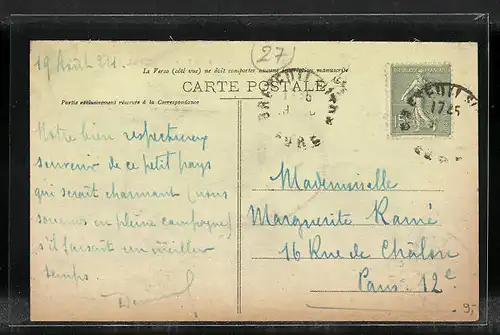 (27)
19 Août 24.
La Verso (côté vue) ne doit comporter aucune inscription manuscrite
CARTE POSTALE
Partie exclusivement réservée à la Correspondance
Notre bien respectueux
souvenir de ce petit pays
qui serait charmant (nous
sommes en pleine campagne)
s'il faisait un meilleur
temps.
Mademoiselle
Marguerite Ramé
16 Rue de Châlon
Paris 12e
BRETEUIL
EURE
BRETEUIL
1725
EURE
9,-